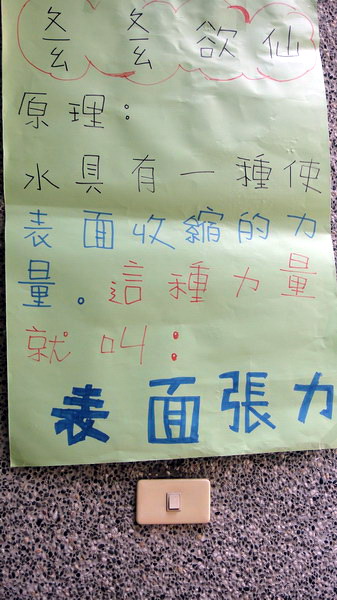 ㄆㄧㄠ ㄆㄧㄠ 欲仙
原理：
水具有一種使
表面收縮的力
量。這種力量
就叫：
表面張力